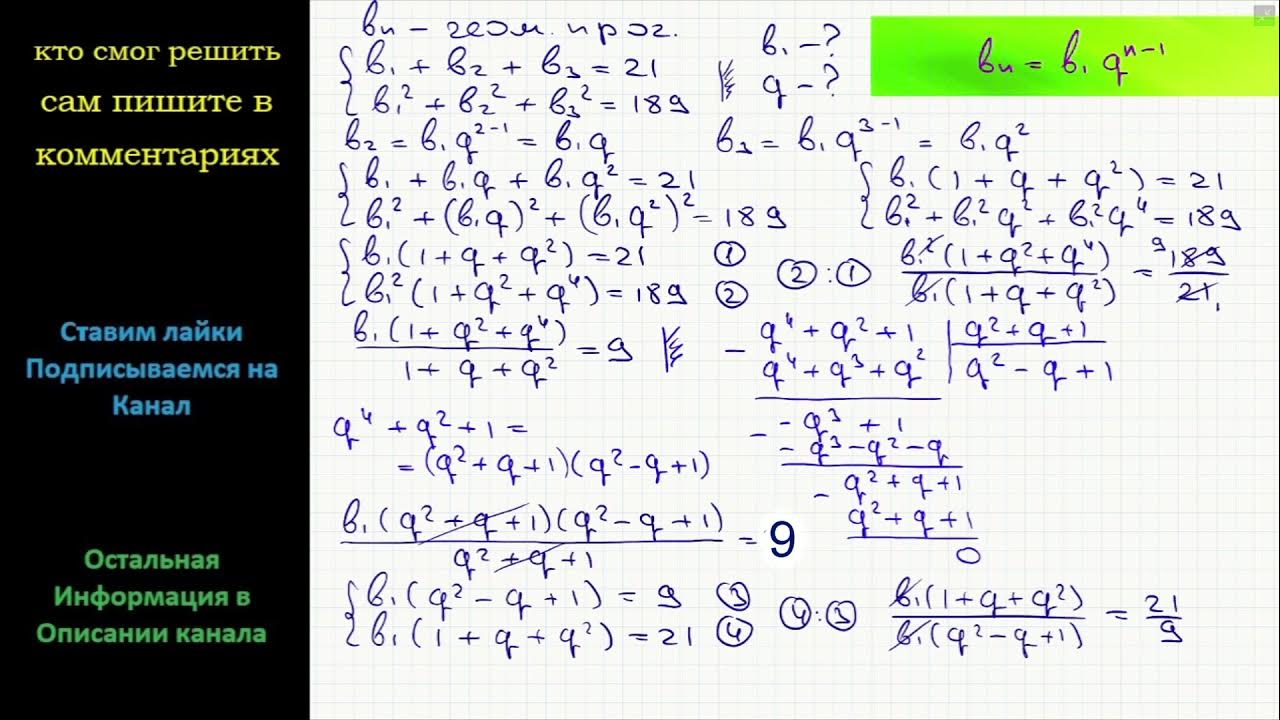 кто смог решить
сам пишите в
комментариях
Ставим лайки
Подписываемся на
Канал
Остальная
Информация в
Описании канала
bₙ – геом. прог.
{ b₁ + b₂ + b₃ = 21
{ b₁² + b₂² + b₃² = 189
b₁ – ?
q – ?
bₙ = b₁ qⁿ⁻¹
b₂ = b₁q²⁻¹ = b₁q
b₃ = b₁q³⁻¹ = b₁q²
{ b₁ + b₁q + b₁q² = 21
{ b₁² + (b₁q)² + (b₁q²)² = 189
{ b₁(1 + q + q²) = 21
{ b₁² + b₁²q² + b₁²q⁴ = 189
{ b₁(1 + q + q²) = 21 ①
{ b₁²(1 + q² + q⁴) = 189 ②
② : ① b₁²(1 + q² + q⁴) / b₁(1 + q + q²) = 9 189 / 21 1
b₁(1 + q² + q⁴) / 1 + q + q² = 9
– q⁴ + q² + 1 | q² + q + 1
q⁴ + q³ + q² | q² – q + 1
– – q³ + 1
– q³ – q² – q
– q² + q + 1
q² + q + 1
0
q⁴ + q² + 1 =
= (q² + q + 1)(q² – q + 1)
b₁(q² + q + 1)(q² – q + 1) / q² + q + 1 = 9
{ b₁(q² – q + 1) = 9 ③
{ b₁(1 + q + q²) = 21 ④
④ : ③ b₁(1 + q + q²) / b₁(q² – q + 1) = 21 / 9